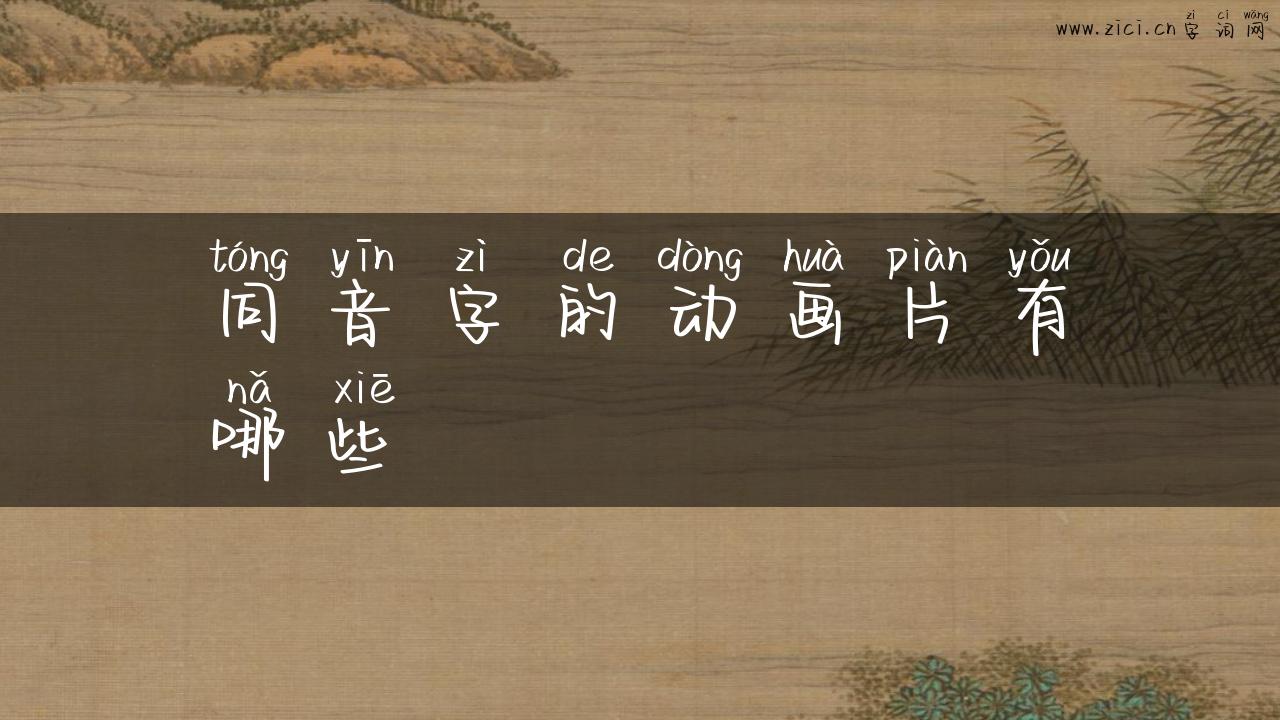 zì cí wǎng
www.zici.cn 字词网
tóng yīn zì de dòng huà piàn yǒu
同音字的动画片有
nǎ xiē
哪些